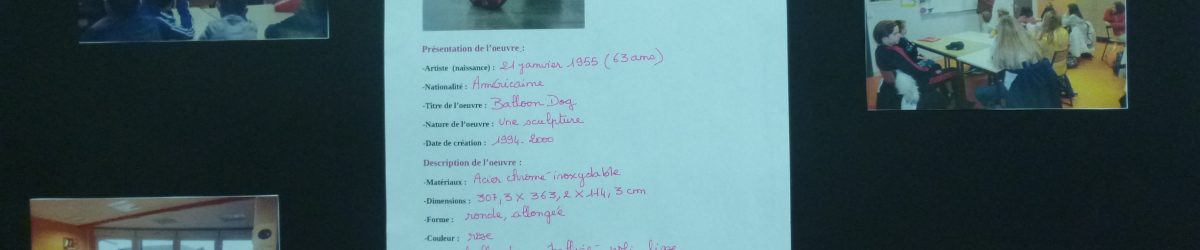 Présentation de l'oeuvre :
-Artiste (naissance) : 21 janvier 1955 (63 ans)
-Nationalité : Américaine
-Titre de l'oeuvre : Balloon Dog
-Nature de l'oeuvre : Une sculpture
-Date de création : 1994-2000
Description de l'oeuvre :
-Matériaux : Acier chromé inoxydable
-Dimensions : 307,3 X 363,2 X 114,3 cm
-Forme : ronde, allongée
-Couleur : rose